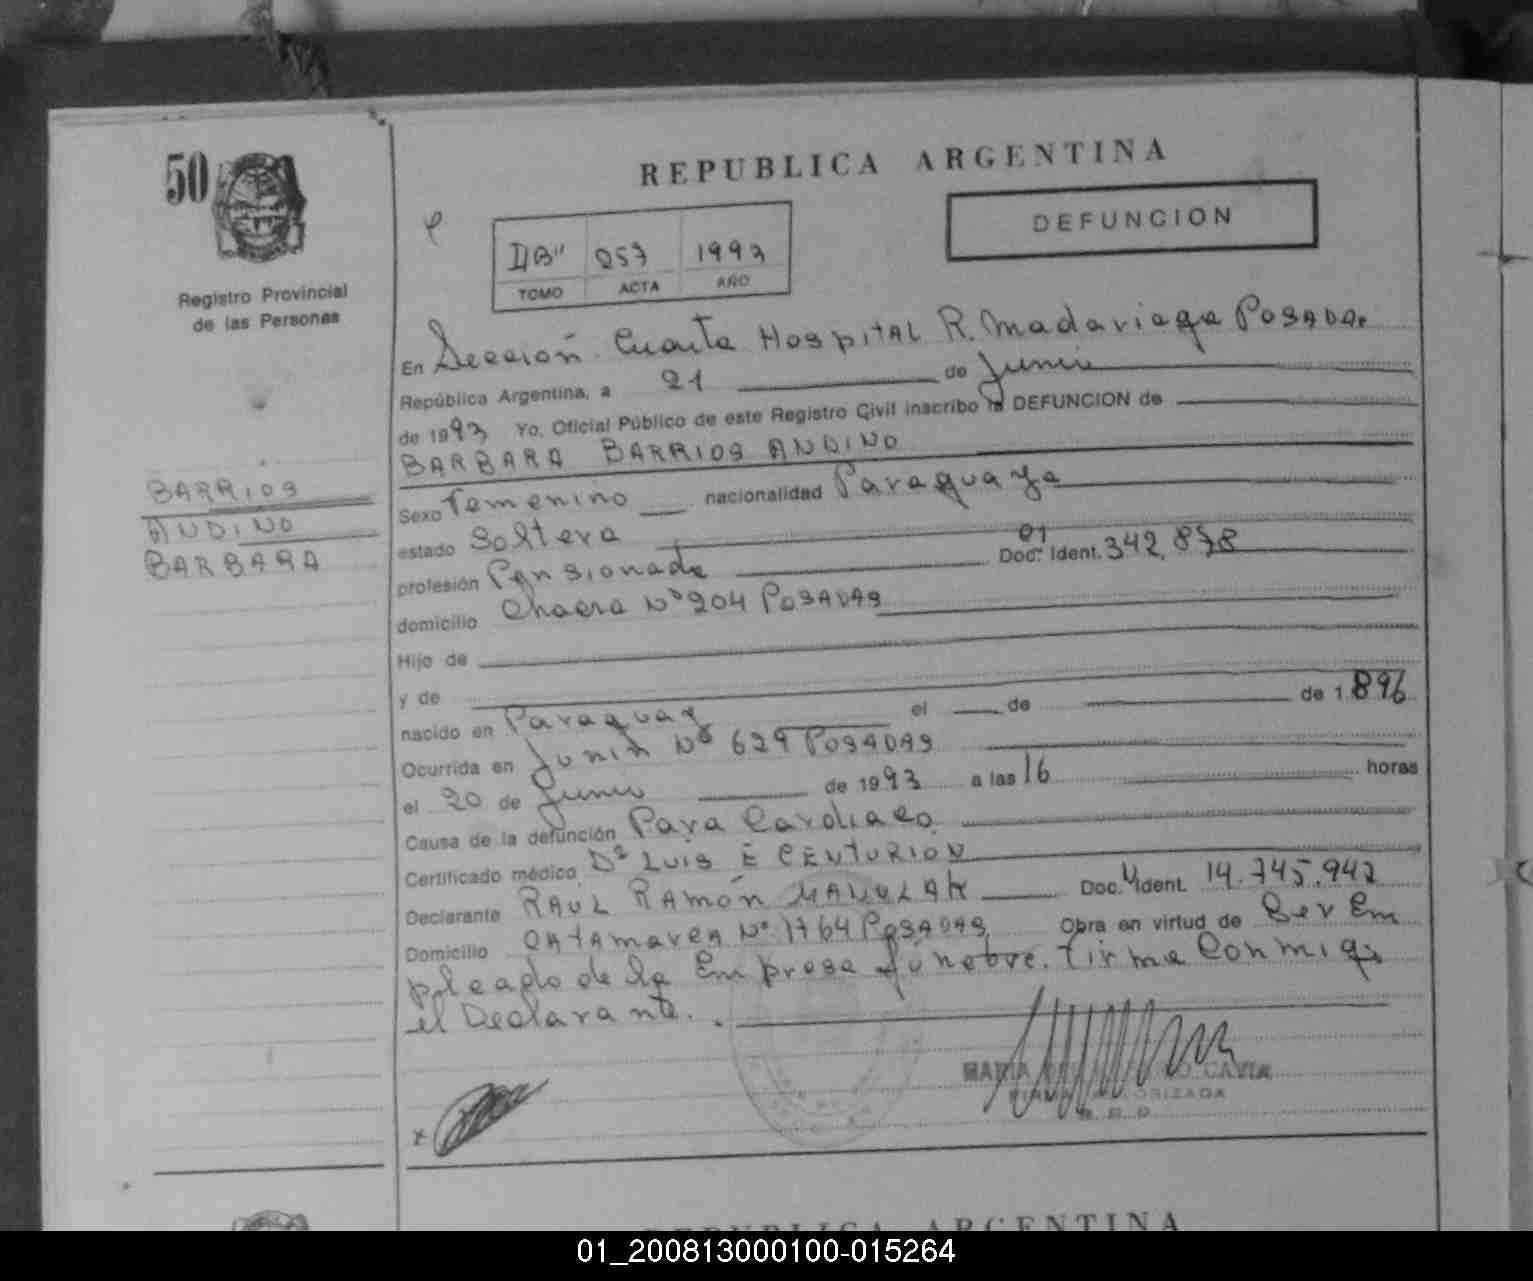 50
REPUBLICA ARGENTINA
DEFUNCION
Registro Provincial
de las Personas
1993
TOMO ACTA AÑO
En Sección Cuarta Hospital R. Madariaga Posadas
República Argentina, a 21 de Junio
de 1993 Yo, Oficial Público de este Registro Civil inscribo la DEFUNCION de
BARBARA BARRIOS ANDINO
BARRIOS
ANDINO
BARBARA
Sexo Femenino nacionalidad Paraguaya
estado Soltera
profesión Pensionada Doc. Ident. 342.878
domicilio Chacra Nº 204 POSADAS
Hijo de
y de
nacido en Paraguay el de de 1.896
Ocurrida en Junin Nº 629 POSADAS
el 20 de Junio de 1993 a las 16 horas
Causa de la defunción Paro Cardiaco
Certificado médico Dr LUIS E CENTURION
Declarante RAUL RAMÓN Doc. Ident. 14.745.942
Domicilio CATAMARCA Nº 1764 POSADAS Obra en virtud de Ser Em
pleado de la Empresa fúnebre. Firma Conmigo
el Declarante.
MARIA CAVIA
FIRMA AUTORIZADA
REPUBLICA ARGENTINA
01_200813000100-015264